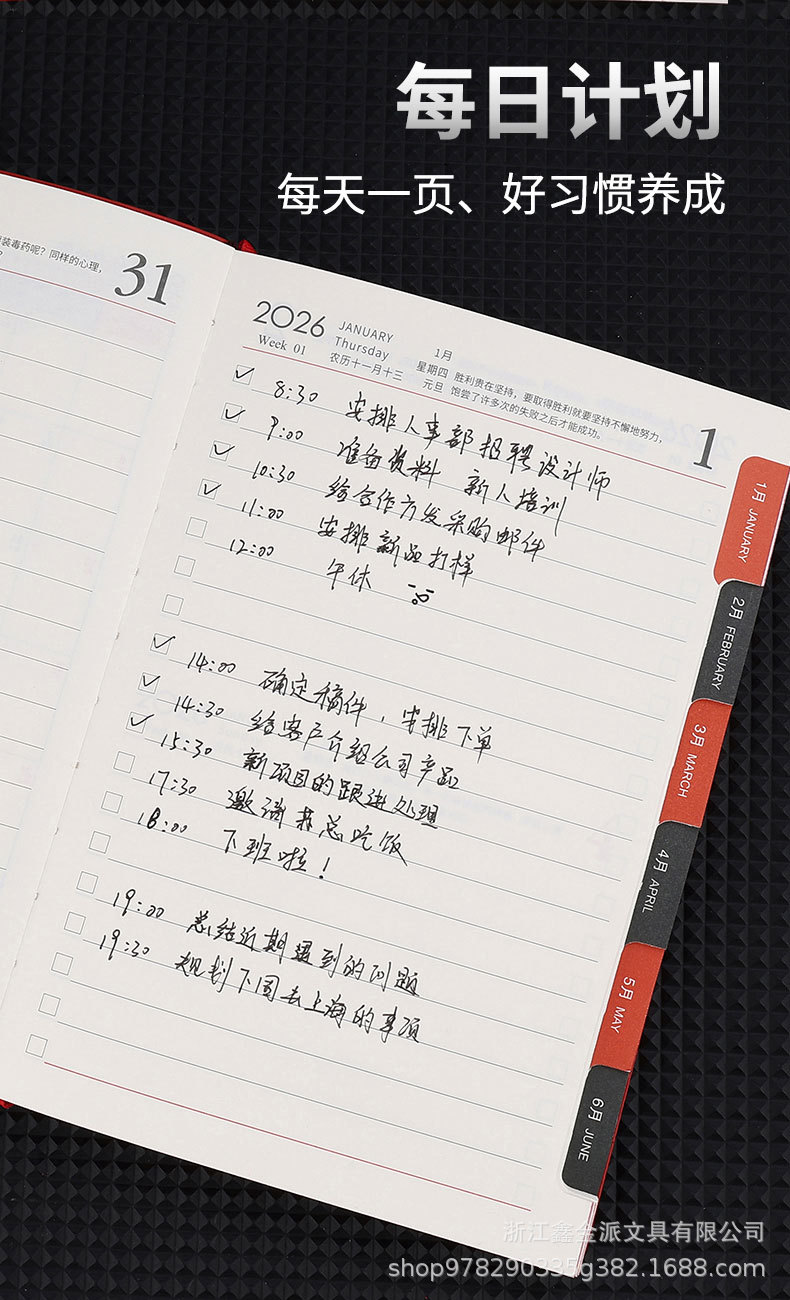 每日计划
每天一页、好习惯养成
装毒药呢?同样的心理,
31
2026
JANUARY
Thursday
1月
Week 01
农历十一月十三
星期四
元旦
胜利贵在坚持,要取得胜利就要坚持不懈地努力,
饱尝了许多次的失败之后才能成功。
1
8:30 安排人事部招聘设计师
9:00 准备资料 新人培训
10:30 给合作方发采购邮件
11:00 安排新品打样
12:00 午休
14:00 确定稿件,安排下单
14:30 给客户介绍公司产品
15:30 新项目的跟进处理
17:30 邀请 总吃饭
18:00 下班啦!
19:00 总结近期遇到的问题
19:30 规划下周去上海的事项
1月 JANUARY
2月 FEBRUARY
3月 MARCH
4月 APRIL
5月 MAY
6月 JUNE
浙江鑫金派文具有限公司
shop978290335g382.1688.com